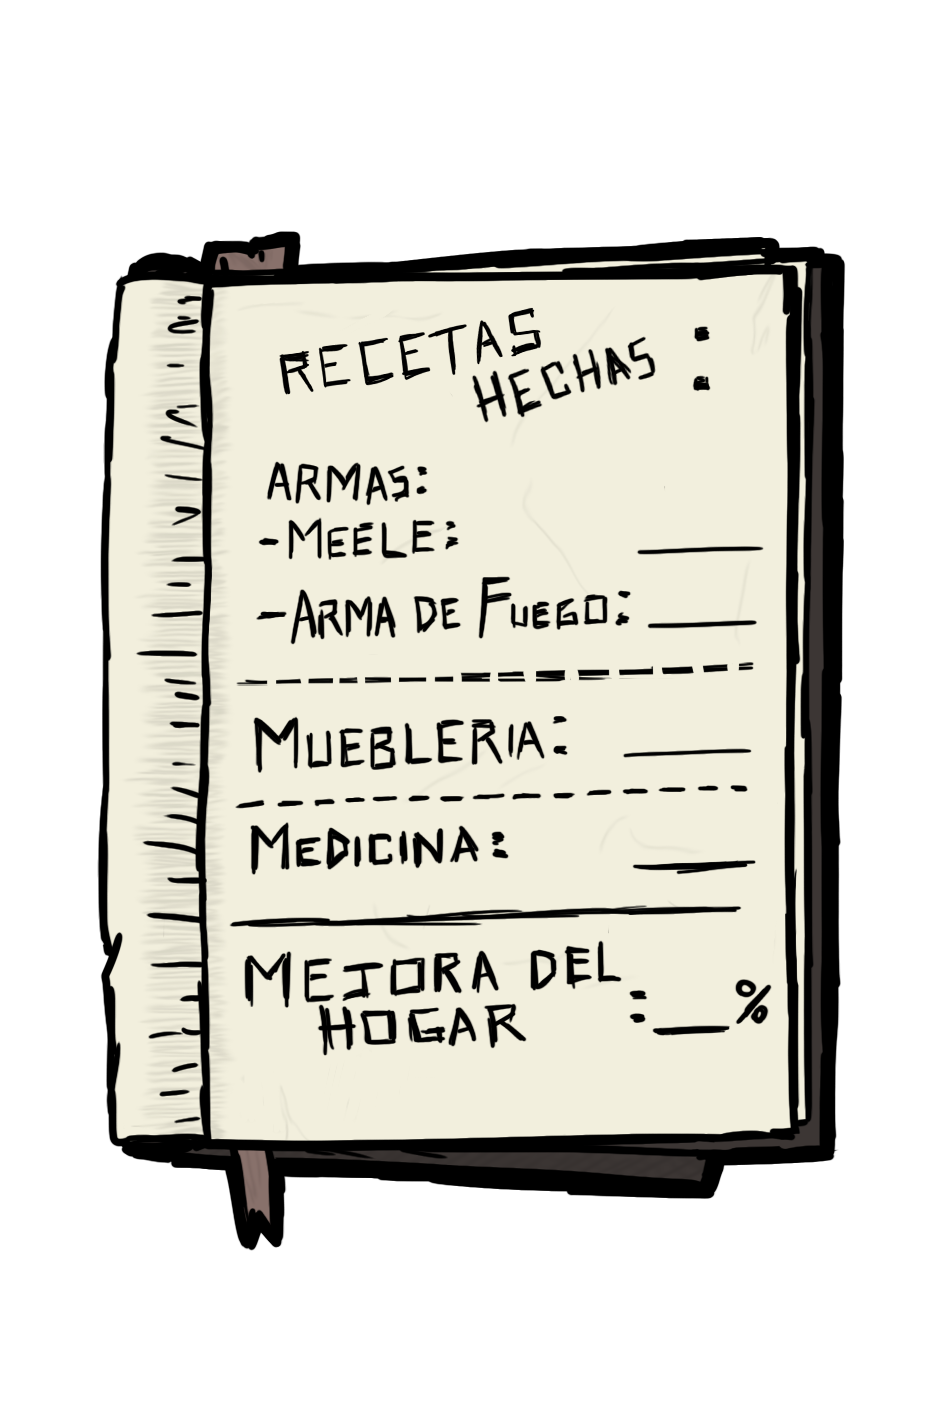 RECETAS
HECHAS :
ARMAS:
-MEELE: ____
-ARMA DE FUEGO: ____
MUEBLERIA: ____
MEDICINA: ____
MEJORA DEL
HOGAR : ____%